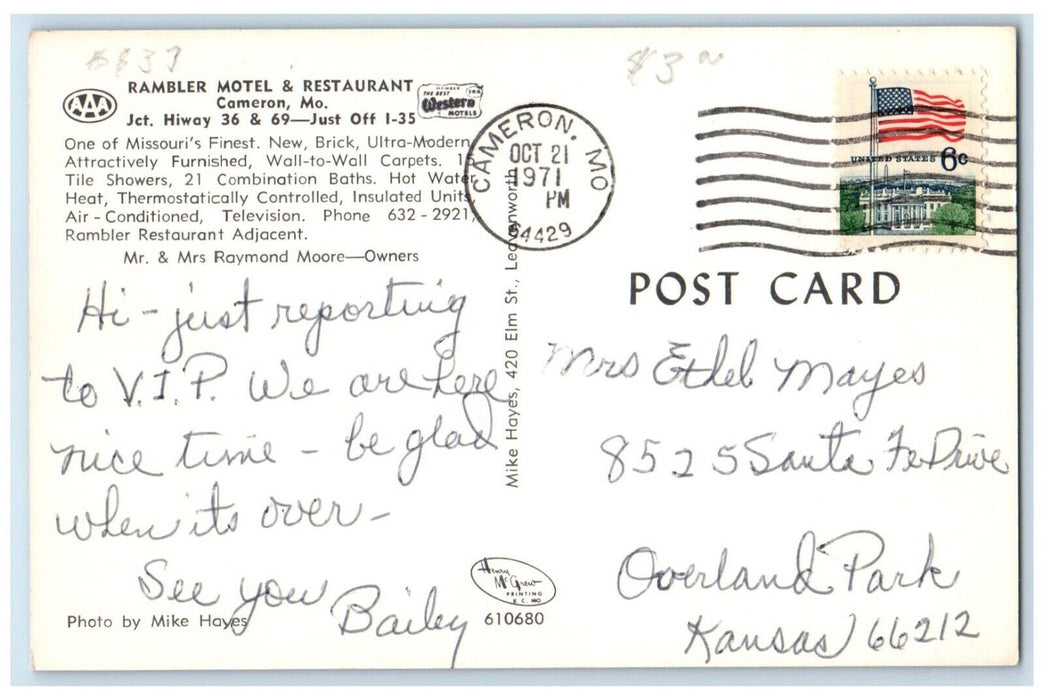 $3
AAA
RAMBLER MOTEL & RESTAURANT
Cameron, Mo.
Jct. Hiway 36 & 69—Just Off I-35
MEMBER
THE BEST
Western
MOTELS
One of Missouri's Finest. New, Brick, Ultra-Modern
Attractively Furnished, Wall-to-Wall Carpets.
Tile Showers, 21 Combination Baths. Hot Water
Heat, Thermostatically Controlled, Insulated Units,
Air-Conditioned, Television. Phone 632-2921,
Rambler Restaurant Adjacent.
Mr. & Mrs Raymond Moore—Owners
Hi - just reporting
to V.I.P. We are here
nice time - be glad
when its over -
See you
Bailey
Photo by Mike Hayes
Mike Hayes, 420 Elm St., Leavenworth
Henry
McGrew
PRINTING
K.C. MO
610680
CAMERON, MO
OCT 21
1971
PM
64429
UNITED STATES 6c
POST CARD
Mrs Ethel Mayes
8525 Santa Fe Drive
Overland Park
Kansas 66212